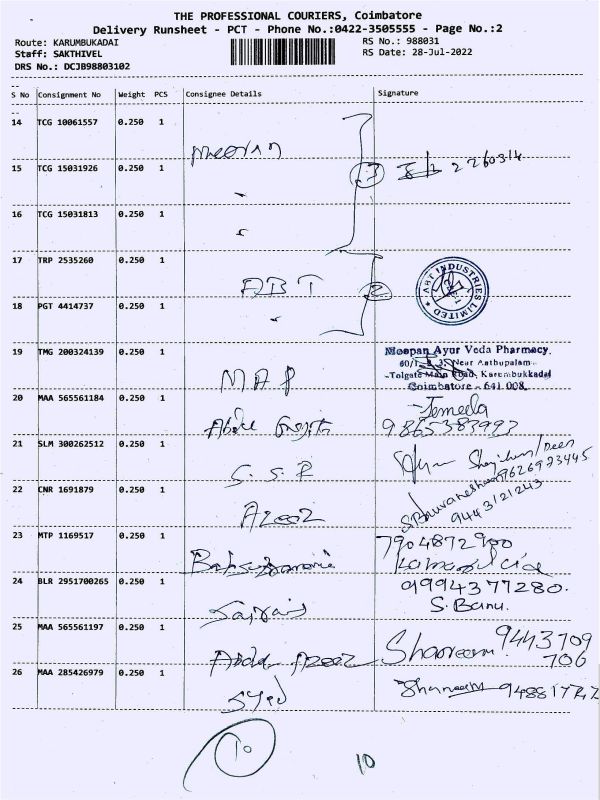 THE PROFESSIONAL COURIERS, Coimbatore
Delivery Runsheet - PCT - Phone No.:0422-3505555 - Page No.:2
Route: KARUMBUKADAI RS No.: 988031
Staff: SAKTHIVEL RS Date: 28-Jul-2022
DRS No.: DCJB98803102
S No Consignment No Weight PCS Consignee Details Signature
14 TCG 10061557 0.250 1
15 TCG 15031926 0.250 1 3
16 TCG 15031813 0.250 1
17 TRP 2535260 0.250 1 ABT 2 ABT INDUSTRIES LIMITED
18 PGT 4414737 0.250 1
19 TMG 200324139 0.250 1 MAP Moopan Ayur Veda Pharmacy,
Near Aathupalam
Tolgate Main Road, Karembukkadai
Coimbatore - 641 008.
20 MAA 565561184 0.250 1 Jemeela
9865383993
21 SLM 300262512 0.250 1 S.S.R 9626923445
22 CNR 1691879 0.250 1 Azeez S.Bhuvaneshwari
9443121243
23 MTP 1169517 0.250 1 7904872900
24 BLR 2951700265 0.250 1 9994377280.
S. Banu.
25 MAA 565561197 0.250 1 Abdul Azeez 9443709
706
26 MAA 285426979 0.250 1 Syed
10 10